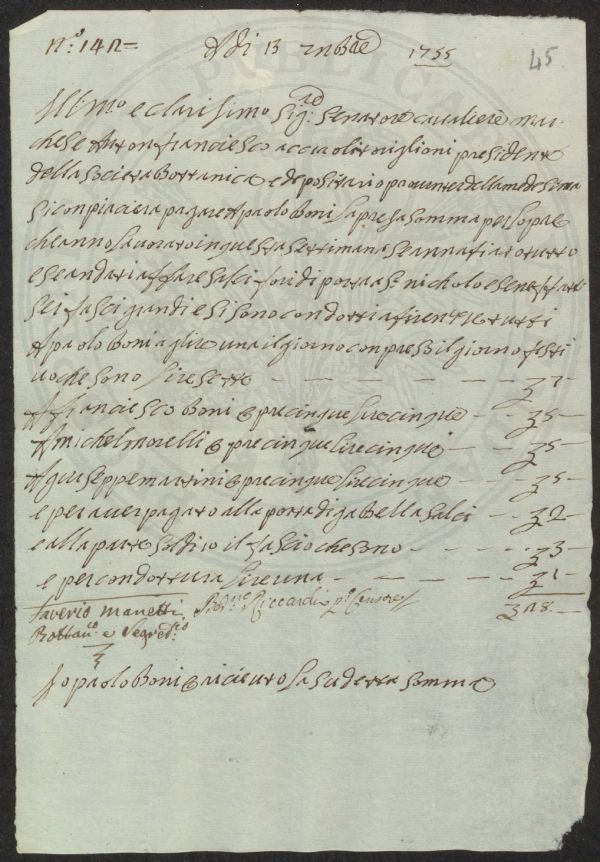 N.º 142= Adi 13 xnbre 1755 45
Ill:mo e clarisimo Sig:re Senatore cavaliere mar-
chese Anton franciesco acciaoli toriglioni presidente
della Societa Bottanica e depositario pro tenpore della medesima
Si conpiaciera pagare A paolo Boni la presa somma per l'opre
che anno lavorato in questa settimana Se annafiato tutto
e Se andati a ffare Salci fori di porta a S.t nicholo e Sene ffatti
Sei fasci grandi e si sono condotti a firenze tutti
A paolo Boni a lire una il giorno conpreso il giorno festi
vo che sono lire sette — — — — — — £ 7
A franciesco Boni opre cinque lire cinque — — £ 5 —
A michel morelli opre cinque lire cinque — — £ 5 —
A giuseppe martini opre cinque lire cinque — — £ 5 —
e per aver pagato alla porta di gabella Salci — £ 2 —
e alla porta Soldi 10 il fascio che sono — — — £ 3 —
e per condottura lire una — — — — £ 1 —
Saverio Manetti, Riccardi p.º Censore £ 28. —
Bottan.co e Segret.rio
Io paolo Boni o riceuto la sudetta somma
PUBLICA